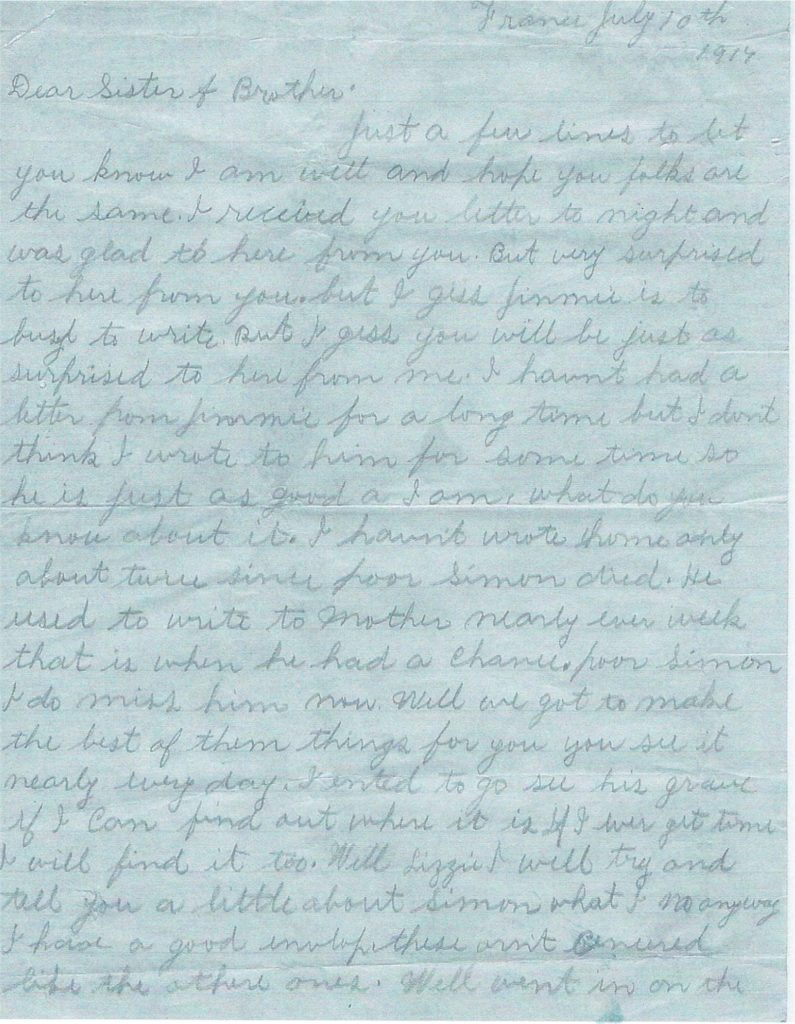 France July 10th
1917
Dear Sister & Brother.
Just a few lines to let
you know I am well and hope you folks are
the same. I received you letter to night and
was glad to here from you. But very surprised
to here from you. but I gess Jimmie is to
busy to write. But I gess you will be just as
surprised to here from me. I havnt had a
letter from Jimmie for a long time but I dont
think I wrote to him for some time so
he is just as good a I am. what do you
know about it. I havnt wrote home only
about twice since poor Simon died. He
used to write to Mother nearly ever week
that is when he had a chance. poor Simon
I do miss him now. Well we got to make
the best of them things for you you see it
nearly every day. I ented to go see his grave
if I can find out where it is If I ever get time
I will find it too. Well Lizzie I will try and
tell you a little about Simon what I no anyway
I have a good envlop. these arnt cencured
like the othere ones. Well went in on the